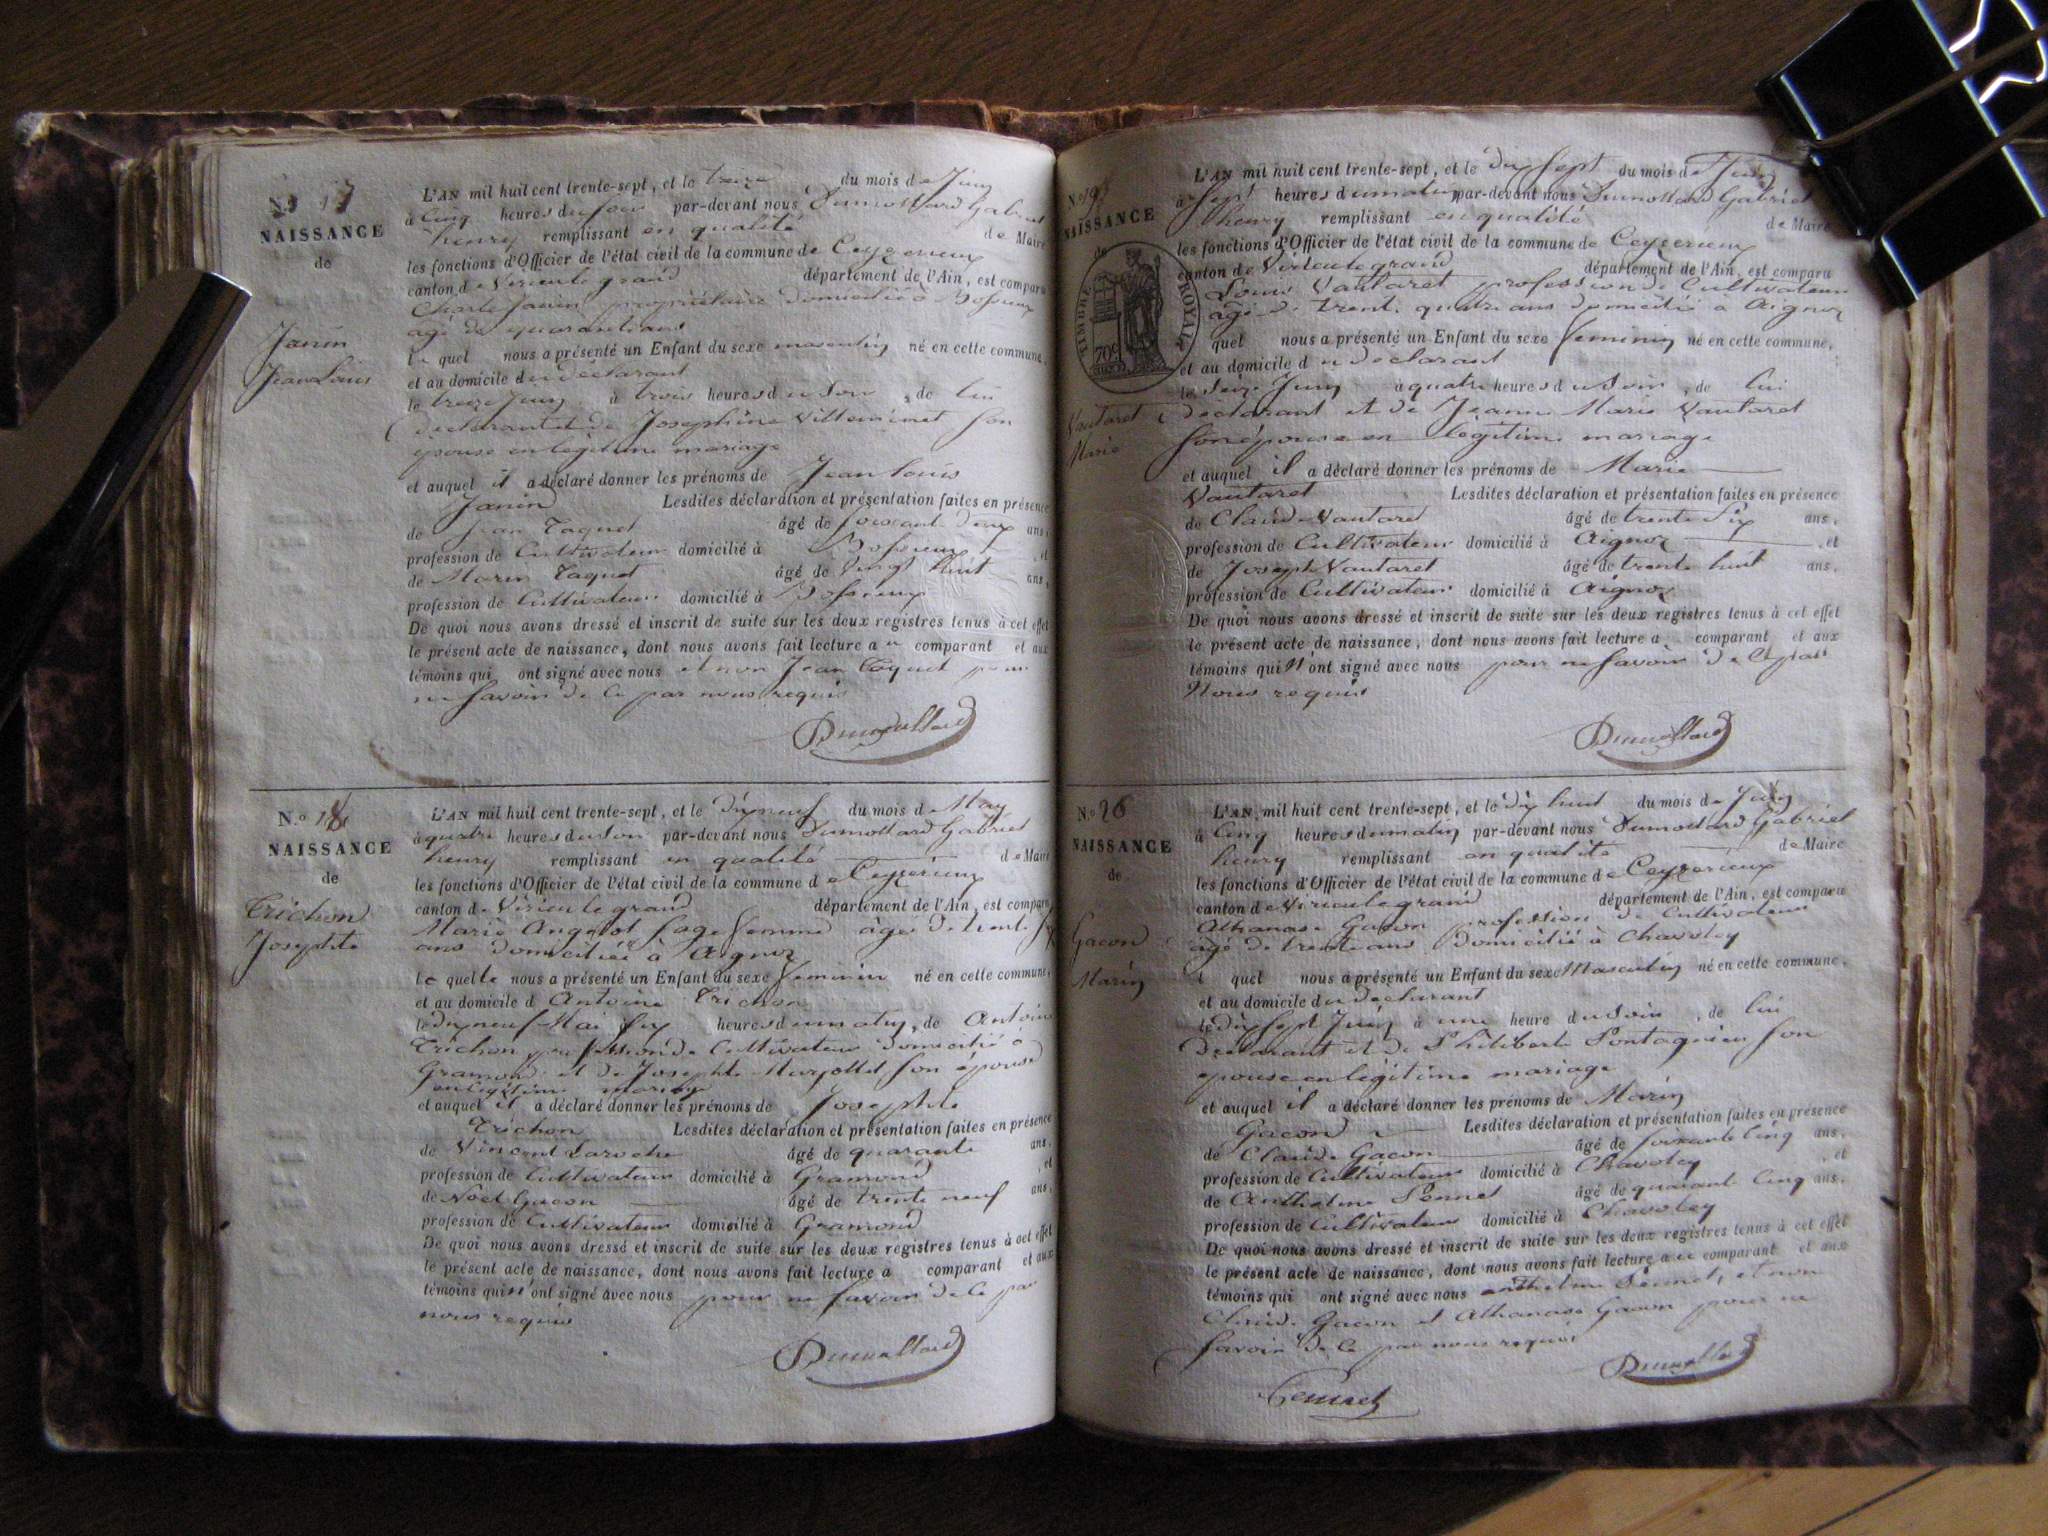 N.o 17
NAISSANCE
de
Janin
Jean Louis
L'AN mil huit cent trente-sept, et le treize du mois de Juin
à cinq heures du soir par-devant nous Dumollard Gabriel
henry remplissant en qualité de Maire
les fonctions d'Officier de l'état civil de la commune de Ceyzerieux
canton de Virieu le grand département de l'Ain, est comparu
Charle Janin propriétaire domicilié à
agé de quarante ans
Le quel nous a présenté un Enfant du sexe masculin né en cette commune,
et au domicile du déclarant
le treize Juin à trois heures du soir, de lui
déclarant et de Josephine son
épouse en légitime mariage
et auquel il a déclaré donner les prénoms de Jean Louis
Janin Lesdites déclaration et présentation faites en présence
de Jean Taquet âgé de soixante deux ans,
profession de Cultivateur domicilié à , et
de Marin Taquet âgé de vingt huit ans,
profession de Cultivateur domicilié à
De quoi nous avons dressé et inscrit de suite sur les deux registres tenus à cet effet
le présent acte de naissance, dont nous avons fait lecture au comparant et aux
témoins qui ont signé avec nous et non Jean Taquet pour
ne savoir de ce par nous requis
Dumollard
N.o 18
NAISSANCE
de
Trichon
Josephte
L'AN mil huit cent trente-sept, et le dix neuf du mois de May
à quatre heures du soir par-devant nous Dumollard Gabriel
henry remplissant en qualité de Maire
les fonctions d'Officier de l'état civil de la commune de Ceyzerieux
canton de Virieu le grand département de l'Ain, est comparu
Marie sage femme âgée de trente six
ans domiciliée à Aignoz
Le quelle nous a présenté un Enfant du sexe feminin né en cette commune,
et au domicile d Antoine Trichon
le dix neuf Mai six heures du matin, de Antoine
Trichon profession de Cultivateur domicilié à
Gramond et de Josephte son épouse
en légitime mariage
et auquel il a déclaré donner les prénoms de Josephte
Trichon Lesdites déclaration et présentation faites en présence
de Vincent Laroche âgé de quarante ans,
profession de Cultivateur domicilié à Gramond, et
de Noël Gacon âgé de trente neuf ans,
profession de Cultivateur domicilié à Gramond
De quoi nous avons dressé et inscrit de suite sur les deux registres tenus à cet effet
le présent acte de naissance, dont nous avons fait lecture a comparant et aux
témoins qui n'ont signé avec nous pour ne savoir de ce par
nous requis
Dumollard
N.o 19
NAISSANCE
de
TIMBRE ROYAL
70c
Vautaret
Marie
L'AN mil huit cent trente-sept, et le dix sept du mois de Juin
à sept heures du matin par-devant nous Dumollard Gabriel
henry remplissant en qualité de Maire
les fonctions d'Officier de l'état civil de la commune de Ceyzerieux
canton de Virieu le grand département de l'Ain, est comparu
Louis Vautaret profession de Cultivateur
âgé de trente quatre ans domicilié à Aignoz
quel nous a présenté un Enfant du sexe feminin né en cette commune,
et au domicile du déclarant
le seize Juin à quatre heures du soir, de lui
déclarant et de Jeanne Marie Vautaret
son épouse en légitime mariage
et auquel il a déclaré donner les prénoms de Marie
Vautaret Lesdites déclaration et présentation faites en présence
de Claude Vautaret âgé de trente six ans,
profession de Cultivateur domicilié à Aignoz, et
de Joseph Vautaret âgé de trente huit ans,
profession de Cultivateur domicilié à Aignoz
De quoi nous avons dressé et inscrit de suite sur les deux registres tenus à cet effet
le présent acte de naissance, dont nous avons fait lecture a comparant et aux
témoins qui n'ont signé avec nous pour ne savoir de ce par
Nous requis
Dumollard
N.o 20
NAISSANCE
de
Gacon
Marin
L'AN mil huit cent trente-sept, et le dix huit du mois de Juin
à cinq heures du matin par-devant nous Dumollard Gabriel
henry remplissant en qualité de Maire
les fonctions d'Officier de l'état civil de la commune de Ceyzerieux
canton de Virieu le grand département de l'Ain, est comparu
Athanase Gacon profession de Cultivateur
âgé de trente ans domicilié à Chavoley
l quel nous a présenté un Enfant du sexe Masculin né en cette commune,
et au domicile du déclarant
le dix sept Juin à une heure du soir, de lui
déclarant et de Philiberte son
épouse en légitime mariage
et auquel il a déclaré donner les prénoms de Marin
Gacon Lesdites déclaration et présentation faites en présence
de Claude Gacon âgé de soixante cinq ans,
profession de Cultivateur domicilié à Chavoley, et
de Anthelme âgé de quarante cinq ans,
profession de Cultivateur domicilié à Chavoley
De quoi nous avons dressé et inscrit de suite sur les deux registres tenus à cet effet
le présent acte de naissance, dont nous avons fait lecture a ce comparant et aux
témoins qui ont signé avec nous anthelme et non
Claude Gacon et Athanase Gacon pour ne
savoir de ce par nous requis
Dumollard